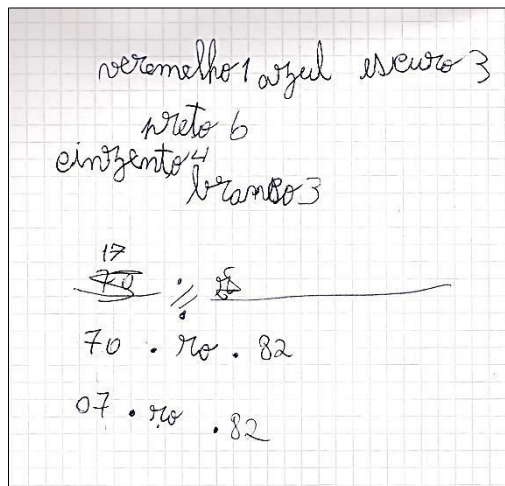 veremelho 1 azul escuro 3
preto 6
cinzento 4
branco 3
17
70 . ro . 82
07 . ro . 82